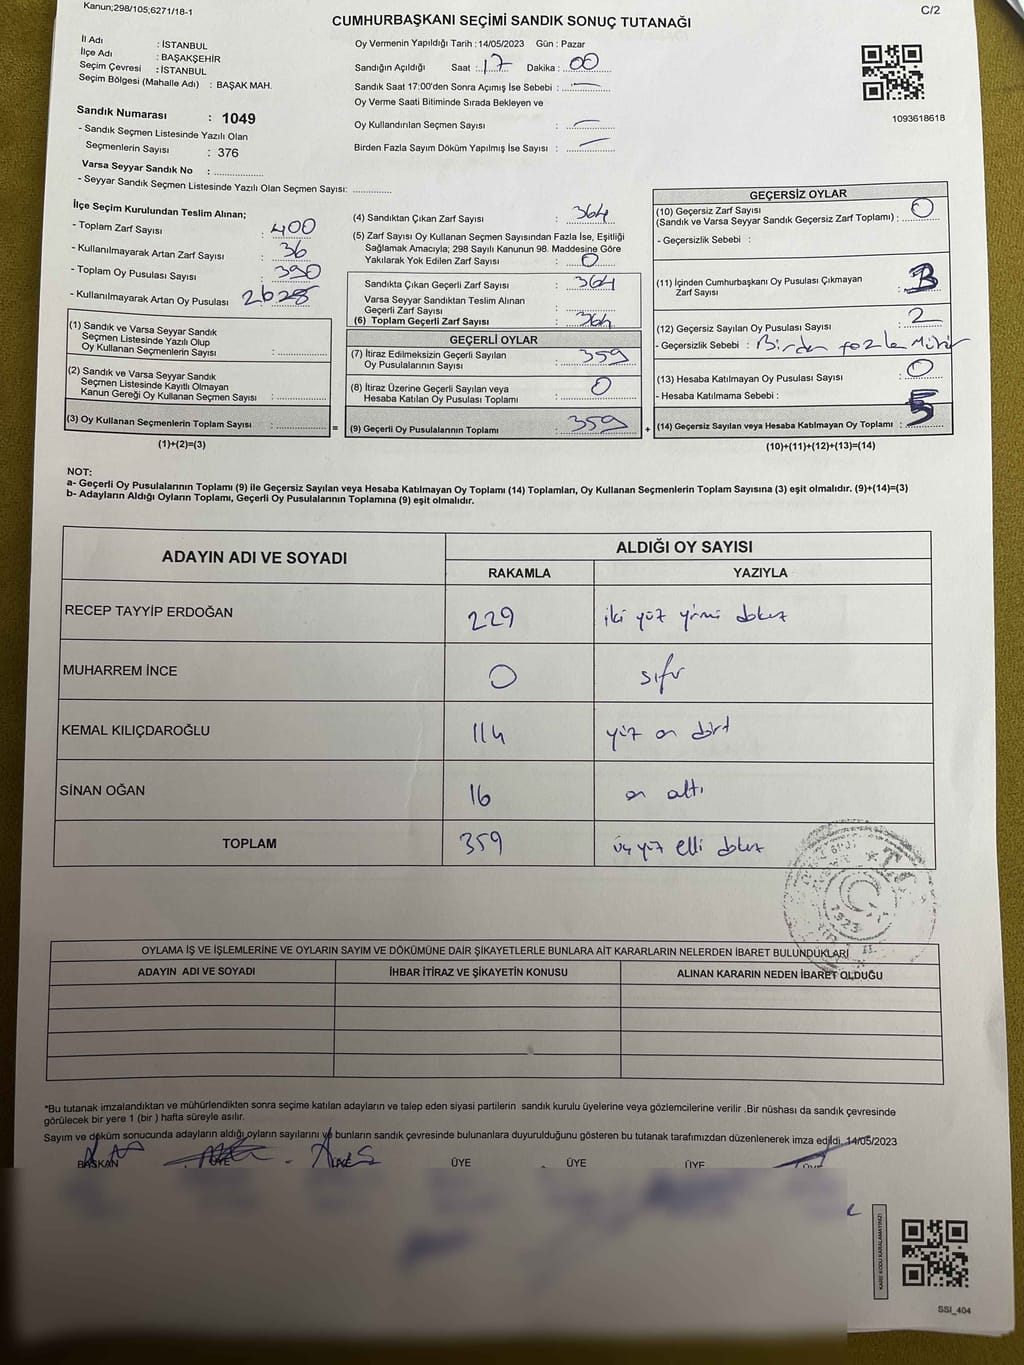 Kanun;298/105,6271/18-1
C/2
CUMHURBAŞKANI SEÇİMİ SANDIK SONUÇ TUTANAĞI
İl Adı : İSTANBUL
İlçe Adı : BAŞAKŞEHİR
Seçim Çevresi : İSTANBUL
Seçim Bölgesi (Mahalle Adı) : BAŞAK MAH.
Oy Vermenin Yapıldığı Tarih : 14/05/2023 Gün : Pazar
Sandığın Açıldığı Saat : 17 Dakika : 00
Sandık Saat 17:00'den Sonra Açımış İse Sebebi : —
Oy Verme Saati Bitiminde Sırada Bekleyen ve
Oy Kullandırılan Seçmen Sayısı : —
Birden Fazla Sayım Döküm Yapılmış İse Sayısı : —
1093618618
Sandık Numarası : 1049
- Sandık Seçmen Listesinde Yazılı Olan
Seçmenlerin Sayısı : 376
Varsa Seyyar Sandık No : ..............
- Seyyar Sandık Seçmen Listesinde Yazılı Olan Seçmen Sayısı: ............
İlçe Seçim Kurulundan Teslim Alınan;
- Toplam Zarf Sayısı : 400
- Kullanılmayarak Artan Zarf Sayısı : 36
- Toplam Oy Pusulası Sayısı : 390
- Kullanılmayarak Artan Oy Pusulası
(1) Sandık ve Varsa Seyyar Sandık
Seçmen Listesinde Yazılı Olup
Oy Kullanan Seçmenlerin Sayısı : ..............
(2) Sandık ve Varsa Seyyar Sandık
Seçmen Listesinde Kayıtlı Olmayan
Kanun Gereği Oy Kullanan Seçmen Sayısı : ..............
(3) Oy Kullanan Seçmenlerin Toplam Sayısı : .............. =
(1)+(2)=(3)
(4) Sandıktan Çıkan Zarf Sayısı : 364
(5) Zarf Sayısı Oy Kullanan Seçmen Sayısından Fazla İse, Eşitliği
Sağlamak Amacıyla; 298 Sayılı Kanunun 98. Maddesine Göre
Yakılarak Yok Edilen Zarf Sayısı : 0
Sandıkta Çıkan Geçerli Zarf Sayısı : 364
Varsa Seyyar Sandıktan Teslim Alınan
Geçerli Zarf Sayısı : ..............
(6) Toplam Geçerli Zarf Sayısı : 364
GEÇERLİ OYLAR
(7) İtiraz Edilmeksizin Geçerli Sayılan : 359
Oy Pusulalarının Sayısı
(8) İtiraz Üzerine Geçerli Sayılan veya : 0
Hesaba Katılan Oy Pusulası Toplamı
(9) Geçerli Oy Pusulalarının Toplamı : 359 +
GEÇERSİZ OYLAR
(10) Geçersiz Zarf Sayısı
(Sandık ve Varsa Seyyar Sandık Geçersiz Zarf Toplamı) : 0
- Geçersizlik Sebebi :
(11) İçinden Cumhurbaşkanı Oy Pusulası Çıkmayan : 3
Zarf Sayısı
(12) Geçersiz Sayılan Oy Pusulası Sayısı : 2
- Geçersizlik Sebebi : Birden fazla Mühür
(13) Hesaba Katılmayan Oy Pusulası Sayısı : 0
- Hesaba Katılmama Sebebi :
(14) Geçersiz Sayılan veya Hesaba Katılmayan Oy Toplamı : 5
(10)+(11)+(12)+(13)=(14)
NOT:
a- Geçerli Oy Pusulalarının Toplamı (9) ile Geçersiz Sayılan veya Hesaba Katılmayan Oy Toplamı (14) Toplamları, Oy Kullanan Seçmenlerin Toplam Sayısına (3) eşit olmalıdır. (9)+(14)=(3)
b- Adayların Aldığı Oyların Toplamı, Geçerli Oy Pusulalarının Toplamına (9) eşit olmalıdır.
ADAYIN ADI VE SOYADI
ALDIĞI OY SAYISI
RAKAMLA YAZIYLA
RECEP TAYYİP ERDOĞAN 229 iki yüz yirmi dokuz
MUHARREM İNCE 0 sıfır
KEMAL KILIÇDAROĞLU 114 yüz on dört
SİNAN OĞAN 16 on altı
TOPLAM 359 üç yüz elli dokuz
1923
OYLAMA İŞ VE İŞLEMLERİNE VE OYLARIN SAYIM VE DÖKÜMÜNE DAİR ŞİKAYETLERLE BUNLARA AİT KARARLARIN NELERDEN İBARET BULUNDUKLARI
ADAYIN ADI VE SOYADI İHBAR İTİRAZ VE ŞİKAYETİN KONUSU ALINAN KARARIN NEDEN İBARET OLDUĞU
*Bu tutanak imzalandıktan ve mühürlendikten sonra seçime katılan adayların ve talep eden siyasi partilerin sandık kurulu üyelerine veya gözlemcilerine verilir .Bir nüshası da sandık çevresinde
görülecek bir yere 1 (bir ) hafta süreyle asılır.
Sayım ve döküm sonucunda adayların aldığı oyların sayılarını ve bunların sandık çevresinde bulunanlara duyurulduğunu gösteren bu tutanak tarafımızdan düzenlenerek imza edildi. 14/05/2023
BAŞKAN ÜYE ÜYE ÜYE ÜYE ÜYE ÜYE
KARE KODU KARALAMAYINIZ!
SSI_404